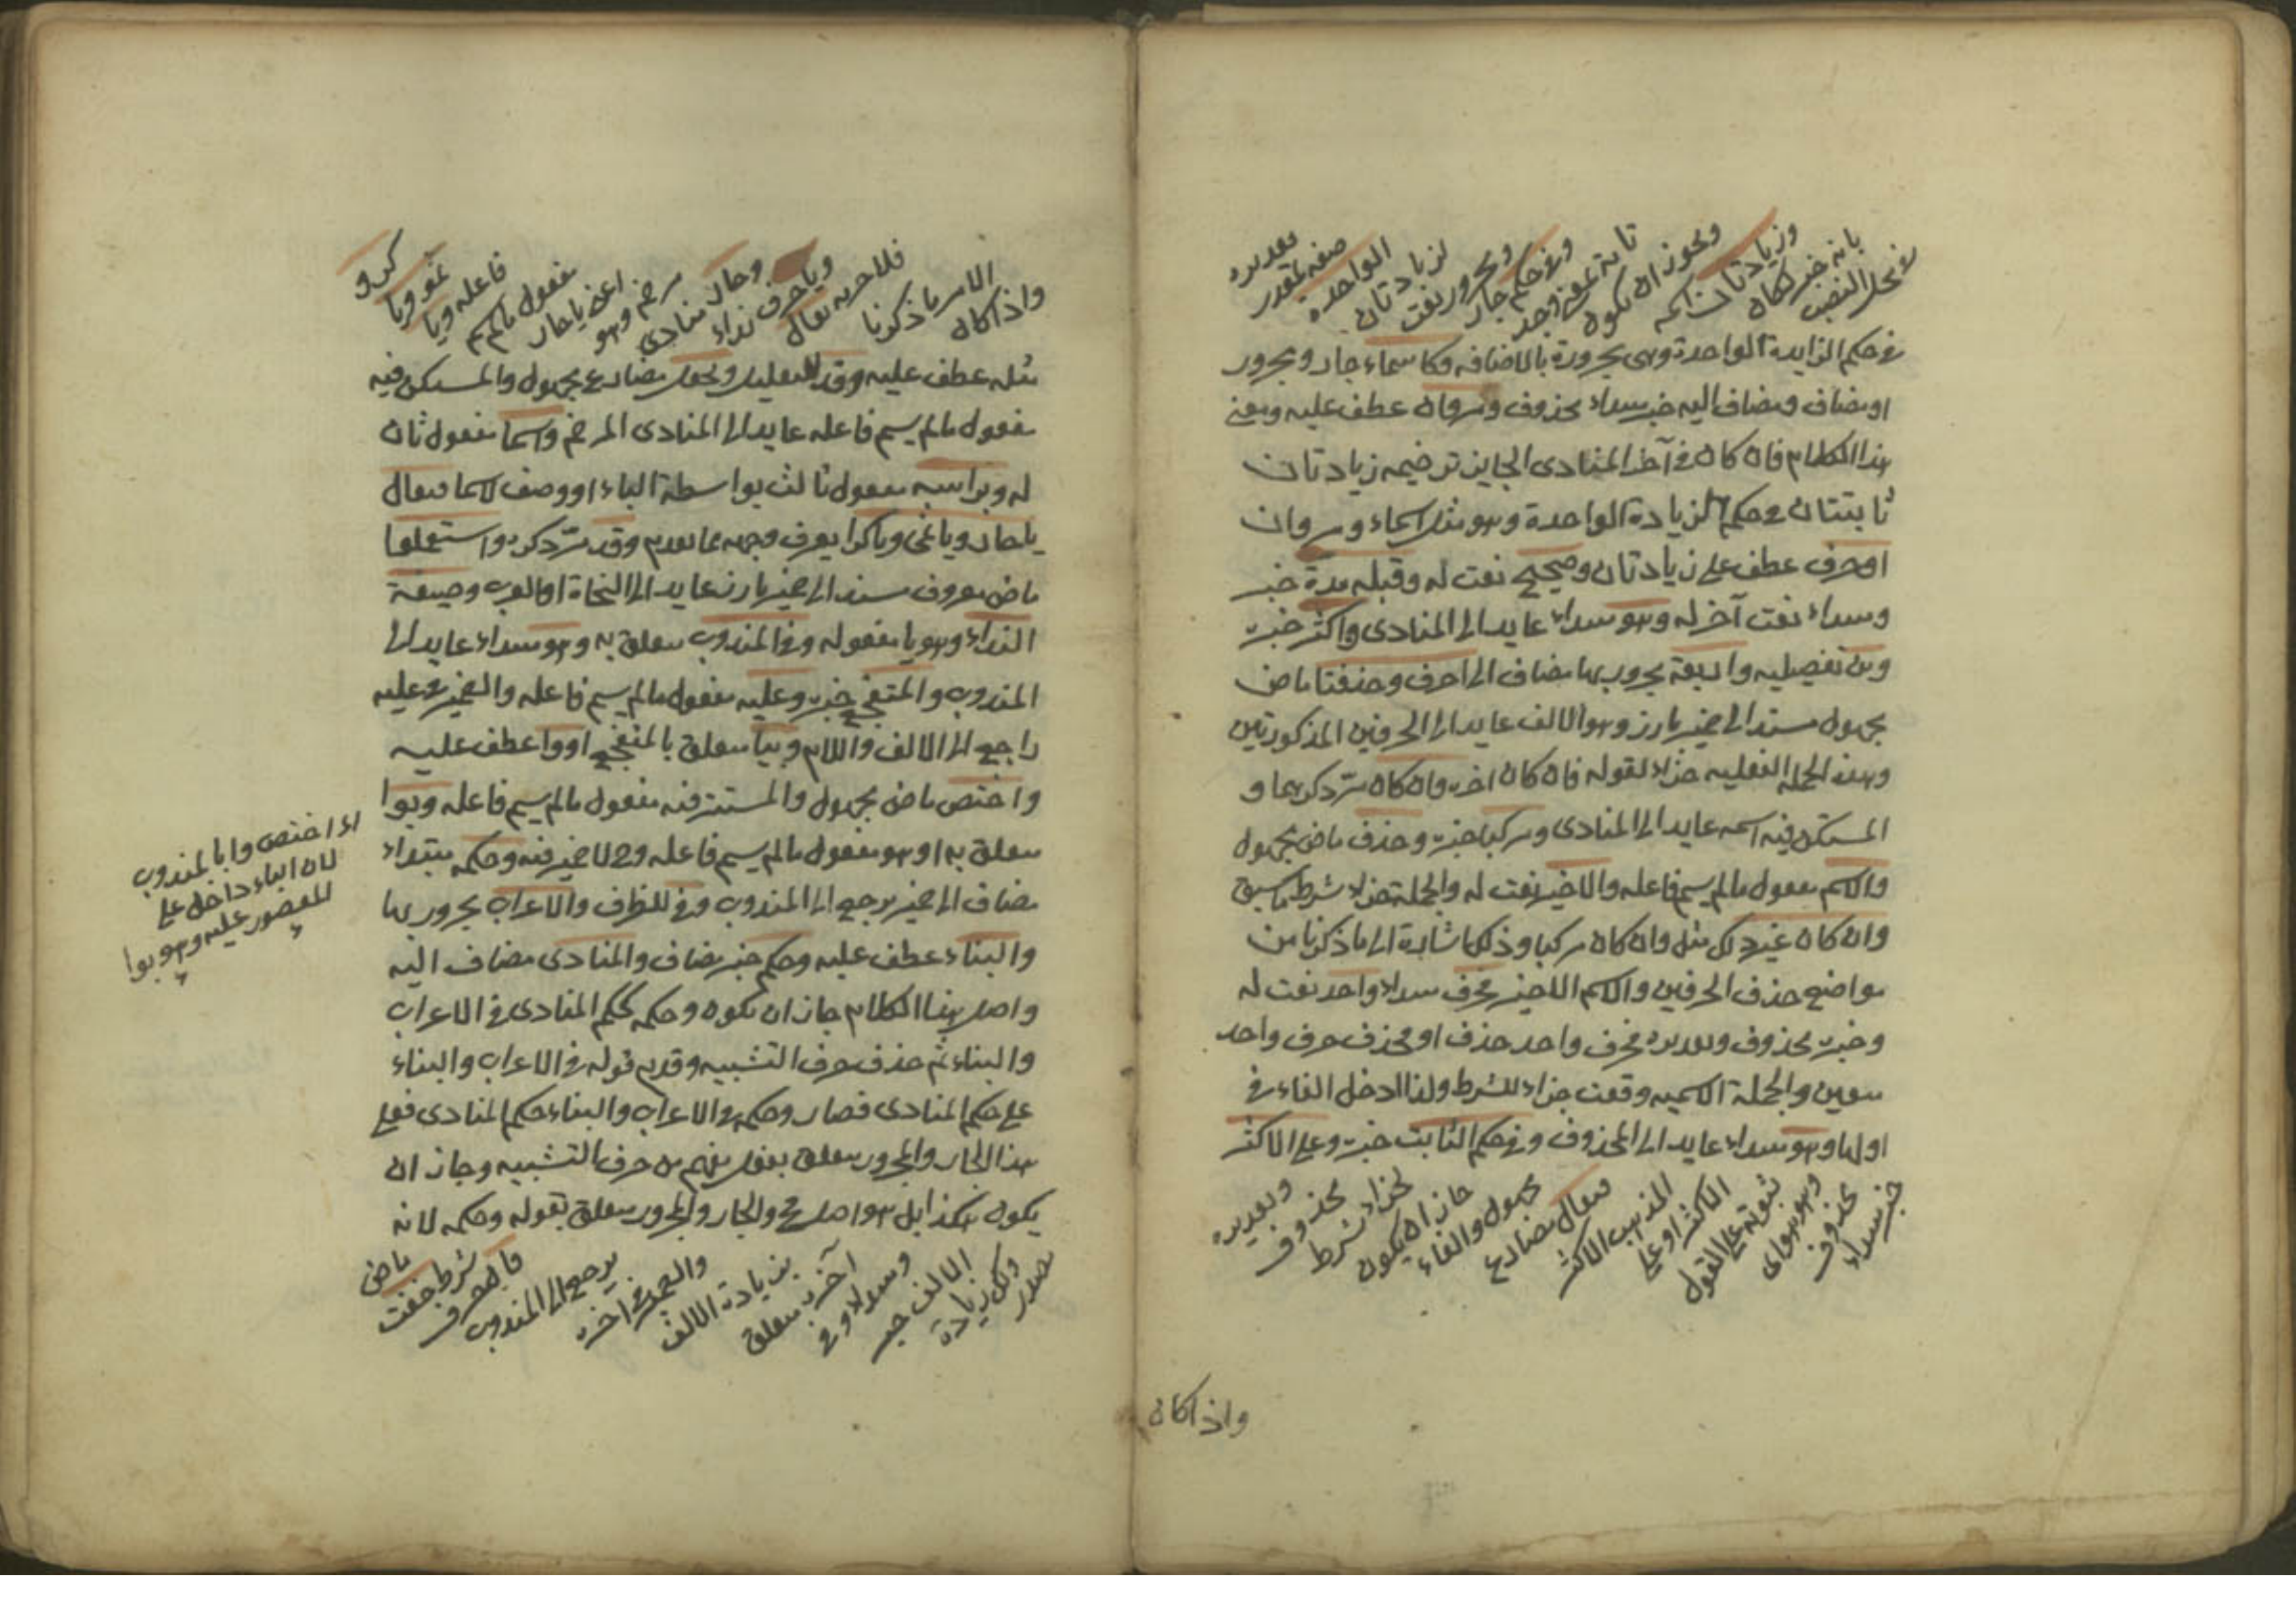 في محل النصب
بانه خبر لكان
وزيادتان اسمه
ويجوز ان يكون
تامة بمعنى وجد
وفي حكم جار
ومجرور نعت
لزيادتان
الواحدة
صفة لمقدر
تقديره
في حكم الزايدة الواحدة وهي مجرورة بالاضافه وكاسماء جار ومجرور
او مضاف ومضاف اليه خبر مبتداء محذوف ومروان عطف عليه ومعنى
هذا الكلام فان كان في آخر المنادى الجايز ترخيمه زيادتان
ثابتتان في حكم الزيادة الواحدة وهو مثل اسماء ومروان
او حرف عطف على زيادتان وصحيح نعت له وقبله مدة خبر
ومبتداء نعت آخر له وهو مبتداء عايد الى المنادى واكثر خبره
ومن تفصيليه واربعة مجرور بها مضاف الى احرف وحذفتا ماض
مجهول مسند الى ضمير بارز وهو الالف عايد الى الحرفين المذكورتين
وهذه الجملة الفعليه جزاء لقوله فان كان اخره وان كان مرّ ذكرهما و
المستكن فيه اسمه عايد الى المنادى ومركبا خبره وحذف ماض مجهول
والاسم مفعول مالم يسم فاعله والاخير نعت له والجملة جزاء شرط ما سبق
وان كان غير ذلك مثل وان كان مركبا وذلك اشارة الى ما ذكرنا من
مواضع حذف الحرفين والاسم الاخير فحرف مبتداء واحد نعت له
وخبره محذوف وتقديره فحرف واحد حذف او فحذف حرف واحد
معين والجملة الاسميه وقعت جزاء للشرط ولذا ادخل الفاء في
اولها وهو مبتداء عايد الى المحذوف وفي حكم الثابت خبره وعلى الاكثر
خبر مبتداء
محذوف
وهو هو اى
ثبوته على القول
الاكثر او على
المذهب الاكثر
فيقال مضارع
مجهول والفاء
جاز ان يكون
لجزاء شرط
محذوف
وتقديره
واذا كان
واذا كان
الامر ما ذكرنا
فلاجره يقال
ويا حرف نداء
وحار منادى
مرخم وهو
اعنى يا حار
مفعول مالم يسم
فاعله ويا
ثمو ويا
كرو
مثله عطف عليه وقد للتقليل ويجعل مضارع مجهول والمستكن فيه
مفعول مالم يسم فاعله عايد الى المنادى المرخم واسما مفعول ثان
له وبراسه مفعول ثالث بواسطة الباء او وصف لاسما فيقال
يا حار ويا ثمى ويا كرا يعرف وجهه مما تقدم وقد مرّ ذكره واستعملوا
ماض معروف مسند الى ضمير بارز عايد الى النحاة او العرب وصيغة
النداء وهو يا مفعوله وفي المندوب متعلق به وهو مبتداء عايد الى
المندوب والمتفجع خبره وعليه مفعول مالم يسم فاعله والضمير في عليه
راجع الى الالف واللام وبيا متعلق بالمتفجع او وا عطف عليه
واختص ماض مجهول والمستتر فيه مفعول مالم يسم فاعله وبوا
متعلق به او هو مفعول مالم يسم فاعله وح لا ضمير فيه وحكمه مبتداء
مضاف الى ضمير يرجع الى المندوب وفي للظرف والاعراب مجرور بها
والبناء عطف عليه وحكم خبر مضاف والمنادى مضاف اليه
واصل هذا الكلام جاز ان يكون وحكمه كحكم المنادى في الاعراب
والبناء ثم حذف حرف التشبيه وقدم قوله في الاعراب والبناء
على حكم المنادى فصار وحكمه في الاعراب والبناء حكم المنادى فعلى
هذا الجار والمجرور متعلق بفعل يفهم من حرف التشبيه وجاز ان
يكون هكذا بل هو اصل ح والجار والمجرور متعلق بقوله وحكمه لانه
مصدر
ولك زيادة
الالف خبر
ومبتداء وفي
آخره متعلق
بزيادة الالف
والضمير في اخره
يرجع الى المندوب
فا لحرف
شرط خفت
ماض
اى اختص وا بالمندوب
لان الباء داخل على
المقصور عليه وهو بوا